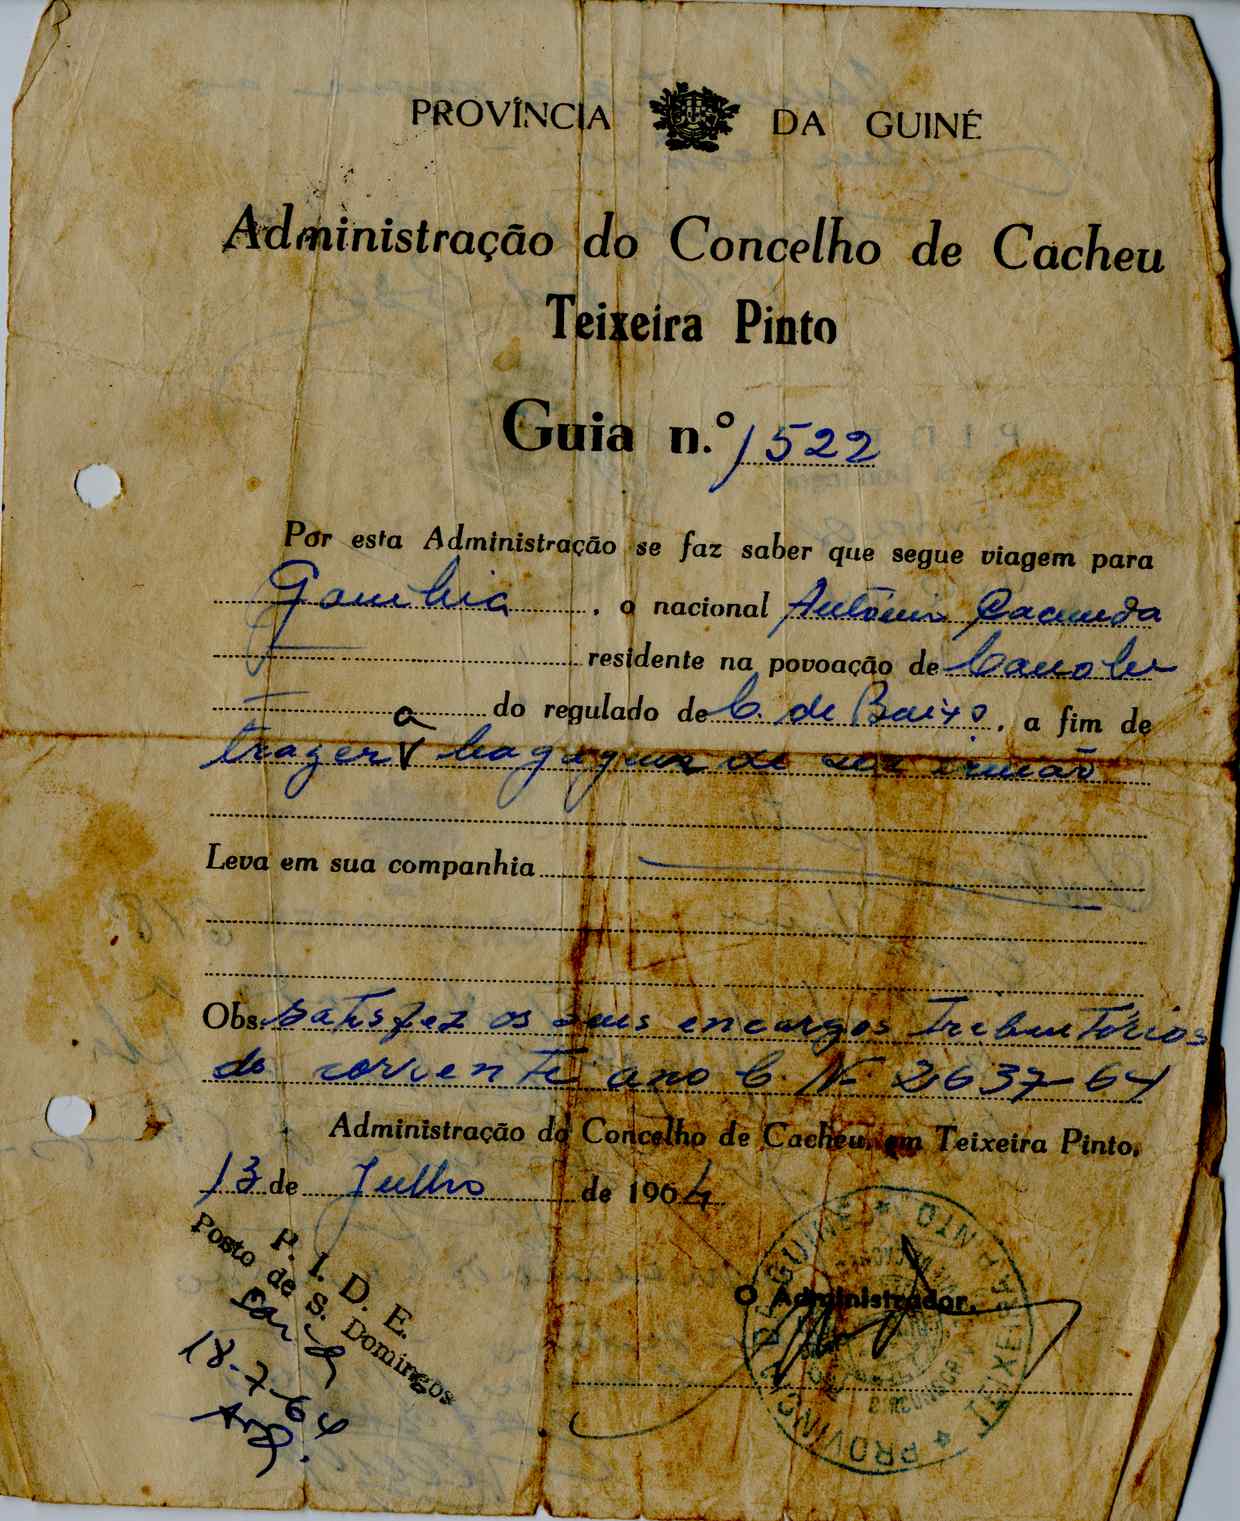 PROVÍNCIA DA GUINÉ
Administração do Concelho de Cacheu
Teixeira Pinto
Guia n.º 1522
Por esta Administração se faz saber que segue viagem para
Gambia, o nacional António
residente na povoação de
do regulado de C. de Baixo, a fim de
trazer a bagagem de seu irmão
Leva em sua companhia
Obs. Satisfez os seus encargos Tributórios
do corrente ano C. Nº 2637-64
Administração do Concelho de Cacheu, em Teixeira Pinto,
13 de Julho de 1964
P. I. D. E.
Posto de S. Domingos
18-7-64
O Administrador,
PROVINCIA DA GUINÉ * TEIXEIRA PINTO *